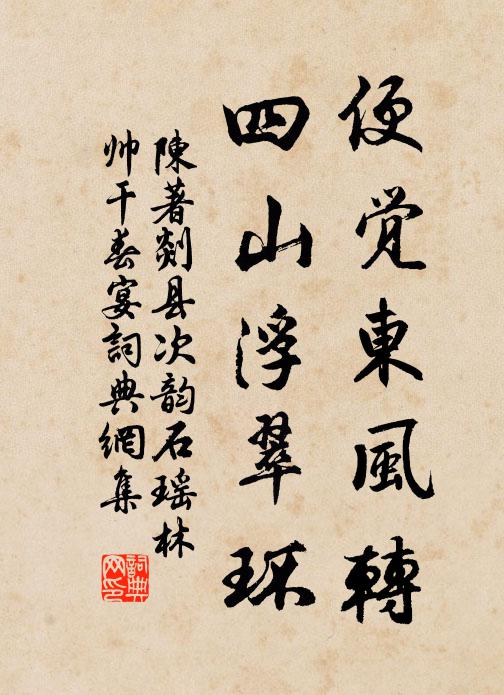 便觉東風轉
四山浮翠环
陳著剡县次韵石瑶林
帅干春宴詞典網集
詞典网印